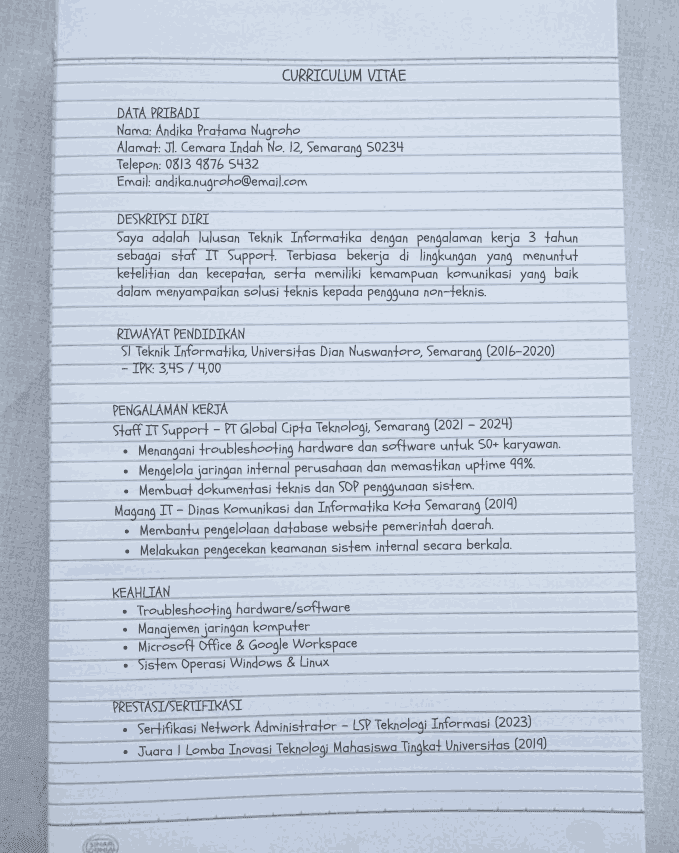 CURRICULUM VITAE
DATA PRIBADI
Nama: Andika Pratama Nugroho
Alamat: Jl. Cemara Indah No. 12, Semarang 50234
Telepon: 0813 9876 5432
Email: andika.nugroho@email.com
DESKRIPSI DIRI
Saya adalah lulusan Teknik Informatika dengan pengalaman kerja 3 tahun
sebagai staf IT Support. Terbiasa bekerja di lingkungan yang menuntut
ketelitian dan kecepatan, serta memiliki kemampuan komunikasi yang baik
dalam menyampaikan solusi teknis kepada pengguna non-teknis.
RIWAYAT PENDIDIKAN
S1 Teknik Informatika, Universitas Dian Nuswantoro, Semarang (2016-2020)
- IPK: 3,45 / 4,00
PENGALAMAN KERJA
Staff IT Support - PT Global Cipta Teknologi, Semarang (2021 - 2024)
• Menangani troubleshooting hardware dan software untuk 50+ karyawan.
• Mengelola jaringan internal perusahaan dan memastikan uptime 99%.
• Membuat dokumentasi teknis dan SOP penggunaan sistem.
Magang IT - Dinas Komunikasi dan Informatika Kota Semarang (2019)
• Membantu pengelolaan database website pemerintah daerah.
• Melakukan pengecekan keamanan sistem internal secara berkala.
KEAHLIAN
• Troubleshooting hardware/software
• Manajemen jaringan komputer
• Microsoft Office & Google Workspace
• Sistem Operasi Windows & Linux
PRESTASI/SERTIFIKASI
• Sertifikasi Network Administrator - LSP Teknologi Informasi (2023)
• Juara 1 Lomba Inovasi Teknologi Mahasiswa Tingkat Universitas (2019)